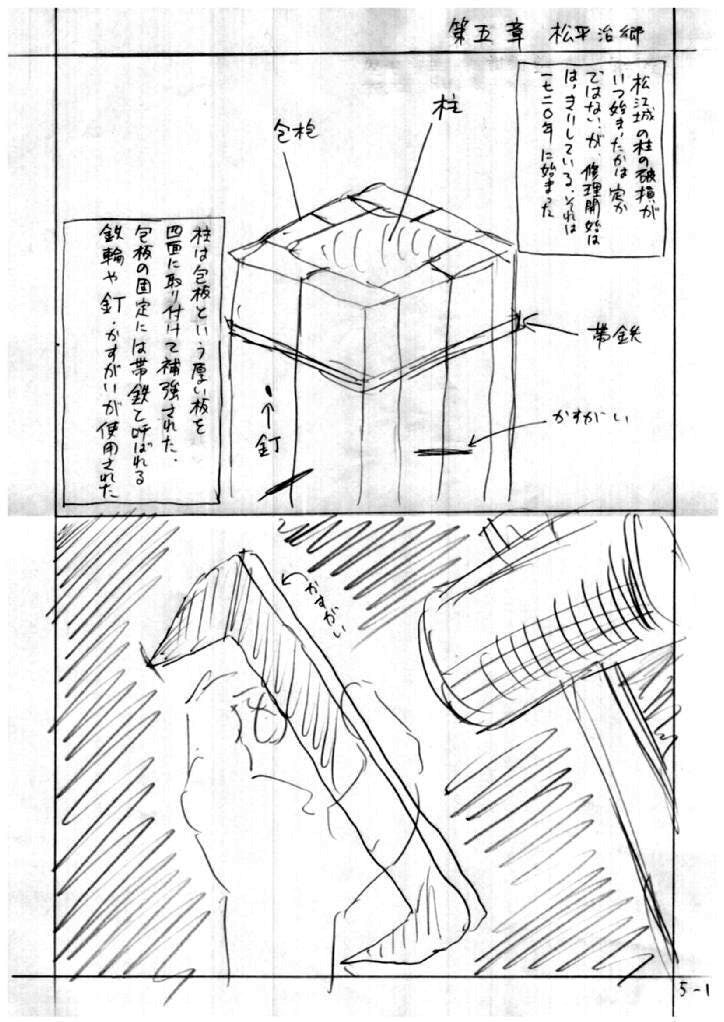 第五章 松平治郷
松江城の柱の破損が
いつ始まったかは定か
ではないが、修理開始は
はっきりしている。それは
一七二〇年に始まった
柱
包板
柱は包板という厚い板を
四面に取り付けて補強された。
包板の固定には帯鉄と呼ばれる
鉄輪や釘・かすがいが使用された
帯鉄
かすがい
釘
かすがい
5-1